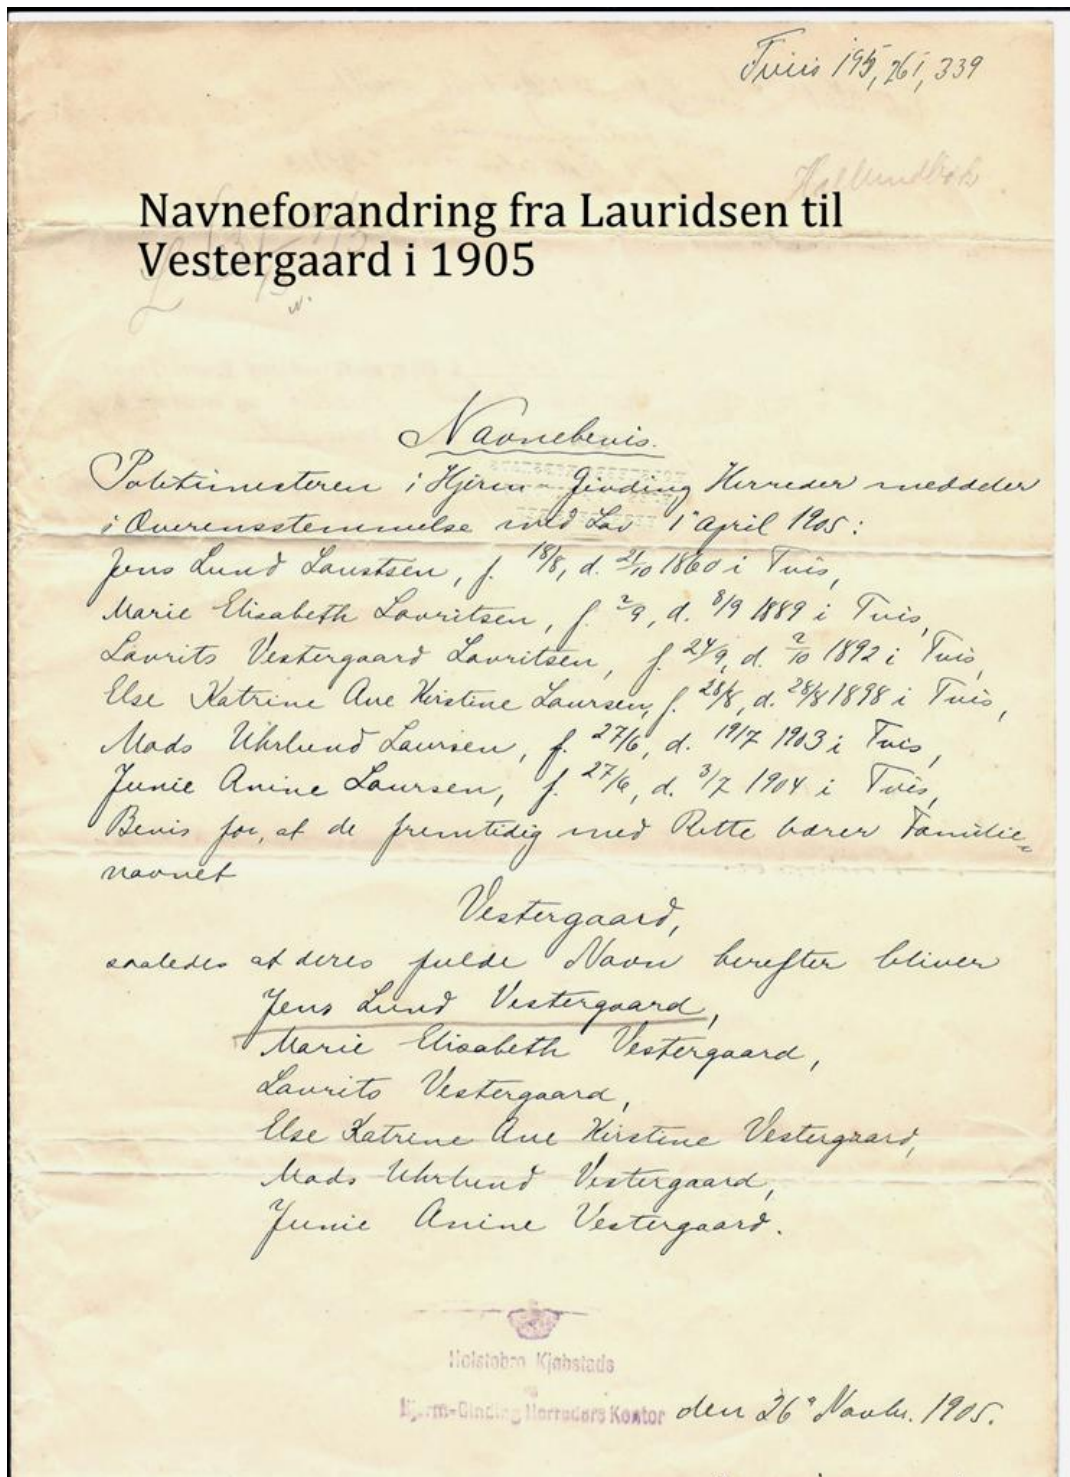 Tviis 195, 261, 339
Navneforandring fra Lauridsen til
Vestergaard i 1905
Navnebevis.
Politimesteren i Hjerm-Ginding Herreder meddeler
i Overensstemmelse med Lov 1 April 1905:
Jens Lund Laustsen, f. 18/8, d. 21/10 1860 i Tvis,
Marie Elisabeth Lauritsen, f. 2/9, d. 8/9 1889 i Tvis,
Laurits Vestergaard Lauritsen, f. 24/9, d. 2/10 1892 i Tvis,
Else Katrine Ane Kirstine Laursen, f. 28/8, d. 28/8 1898 i Tvis,
Mads Uhrlund Laursen, f. 27/6, d. 19/7 1903 i Tvis,
Junie Anine Laursen, f. 27/6, d. 3/7 1904 i Tvis,
Bevis for, at de fremtidig med Rette bærer Familie=
navnet
Vestergaard,
saaledes at deres fulde Navn herefter bliver
Jens Lund Vestergaard,
Marie Elisabeth Vestergaard,
Laurits Vestergaard,
Else Katrine Ane Kirstine Vestergaard,
Mads Uhrlund Vestergaard,
Junie Anine Vestergaard.
Holstebro Kjøbstads
Hjerm-Ginding Herreders Kontor den 26' Novbr. 1905.